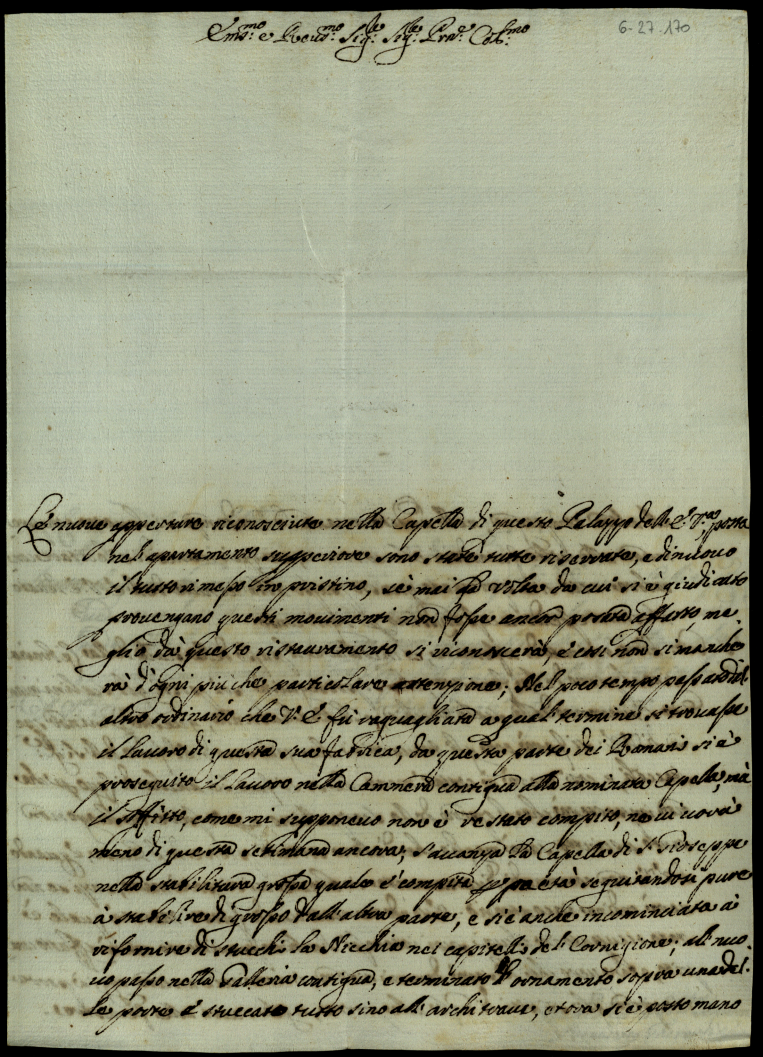 Em.mo e Reud.mo Sig.re Sig.re Pne Col.mo
6-27-170
Le nuove appertture riconosciute nella Capella di questo Palazzo dell'E. V. posta
nel apartamento suggeriore sono state tutte riserrate, e di nuovo
il tutto rimesso in pristino, se mai la volta da cui si è giudicato
provengano questi movimenti non fosse ancor posata affatto, me-
glio da questo ristauramento si riconoscerà, è così non si manche
rà d'ogni più che particolare attenzione; Nel poco tempo passato dal
altro ordinario che V. E. fù raguagliata a qual termine si trovasse
il Lavoro di questa sua fabrica, da questa parte dei Romani si è
proseguito il Lavoro nella Cammera contigua alla nominata Capella, mà
il soffitto, come mi supponevo non è restato compito, ne vi vorà
meno di questa settimana ancora; s'avanza la Capella di S. Gioseppe
nella stabilitura grossa quale è compita seguitandosi pure
à stabilire di grosso dall'altra parte, e si è anche incominciato à
rifornire di stucchi la Nicchia nei capitelli del Cornigione; al nuo-
vo passo nella Galleria contigua, e terminato l'ornamento sopra una del-
le porte è stuccato tutto sino all'architrave, et ora si è posto mano